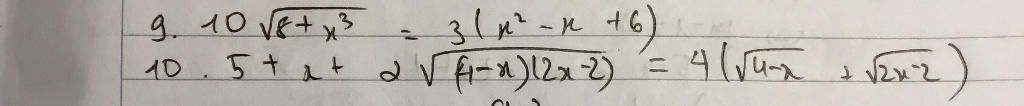 9. 10 √(8+x³) = 3(x²-x+6)
10. 5+x+2√((4-x)(2x-2)) = 4(√(4-x) + √(2x-2))